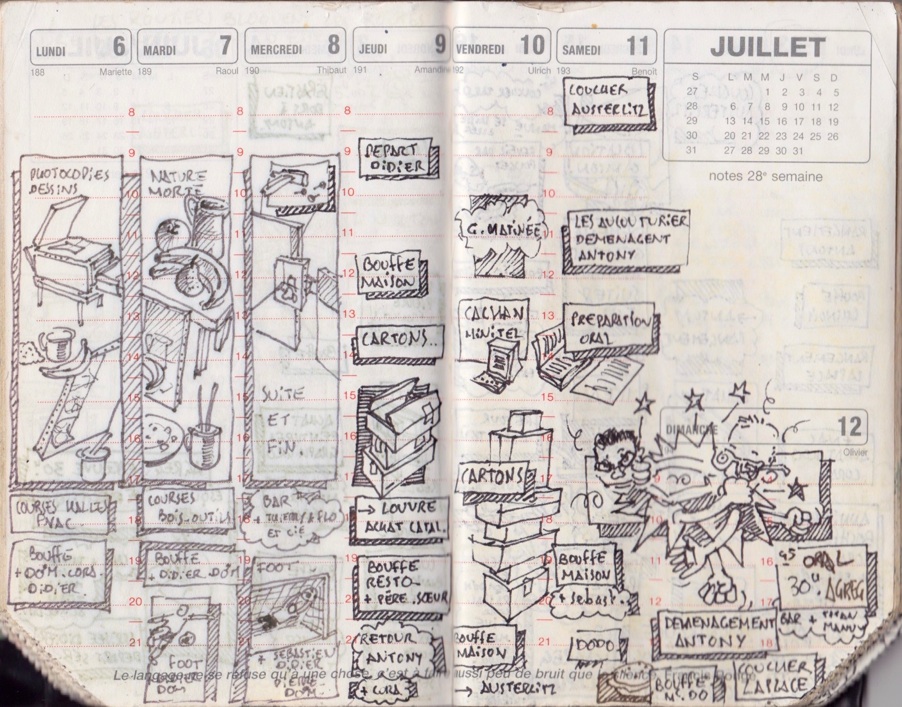 LUNDI 6
188 Mariette
PHOTOCOPIES
DESSINS
COURSES HALLES
FNAC.
BOUFFE
+ DOM. CORA.
DIDIER.
MARDI 7
189 Raoul
NATURE
MORTE
COURSES
BOIS. OUTILS
BOUFFE
+ DIDIER DOM
FOOT
DOM
MERCREDI 8
190 Thibaut
SUITE
ET
FIN.
BAR
ET CIE
FOOT
+ SEBASTIEN
DIDIER
DOM.
JEUDI 9
191 Amandine
8
9
10
11
12
13
14
15
16
17
18
19
20
21
DEPART
DIDIER
BOUFFE
MAISON
CARTONS..
→ LOUVRE
ACHAT CATAL.
BOUFFE
RESTO-
+ PÈRE. SŒUR
RETOUR
ANTONY
+ CORA.
VENDREDI 10
192 Ulrich
G. MATINÉE
CALVAN
MINITEL
CARTONS
BOUFFE
MAISON
→ AUSTERLITZ
SAMEDI 11
193 Benoît
COUCHER
AUSTERLITZ
DEMENAGENT
ANTONY
PREPARATION
ORAL
BOUFFE
MAISON
+ SEBAST.
DODO
JUILLET
S L M M J V S D
27 1 2 3 4 5
28 6 7 8 9 10 11 12
29 13 14 15 16 17 18 19
30 20 21 22 23 24 25 26
31 27 28 29 30 31
notes 28e semaine
DIMANCHE 12
Olivier
ORAL
30" AGREG
BAR +
MANU
DEMENAGEMENT
ANTONY
BOUFFE
COUCHER
LAPLACE
Le langage ne se refuse qu'à une chose, c'est à faire aussi peu de bruit que le silence.